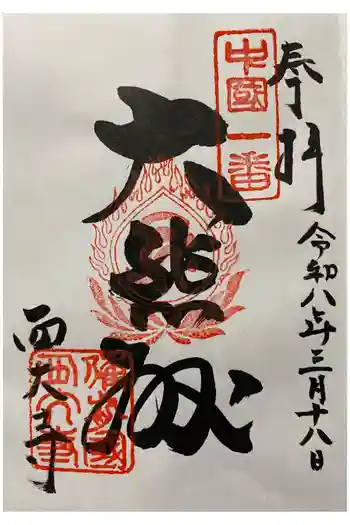 奉拝
中國一番
令和八年三月十八日
大悲殿
西大寺
備前國
西大寺